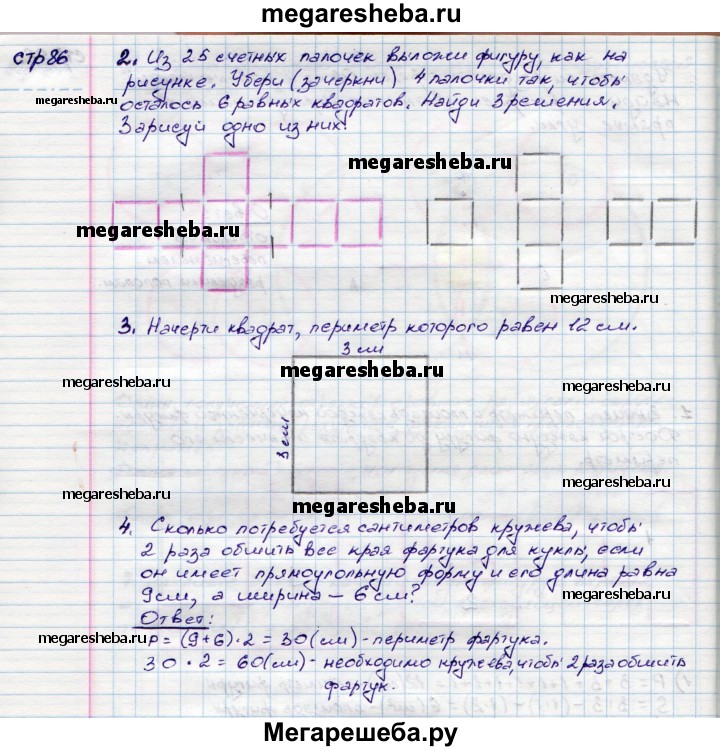 megaresheba.ru
стр 86
2. Из 25 счетных палочек выложи фигуру, как на
рисунке. Убери (зачеркни) 4 палочки так, чтобы
megaresheba.ru
осталось 6 равных квадратов. Найди 3 решения.
Зарисуй одно из них.
megaresheba.ru
megaresheba.ru
megaresheba.ru
3. Начерти квадрат, периметр которого равен 12 см.
3 см
megaresheba.ru
megaresheba.ru
megaresheba.ru
3 см
megaresheba.ru
megaresheba.ru
megaresheba.ru
4. Сколько потребуется сантиметров кружева, чтобы
2 раза обшить все края фартука для куклы, если
он имеет прямоугольную форму и его длина равна
9см, а ширина – 6 см?
megaresheba.ru
Ответ:
megaresheba.ru
P = (9+6)·2 = 30(см) - периметр фартука.
30 · 2 = 60(см) - необходимо кружева, чтобы 2 раза обшить
фартук.
Мегарешеба.ру